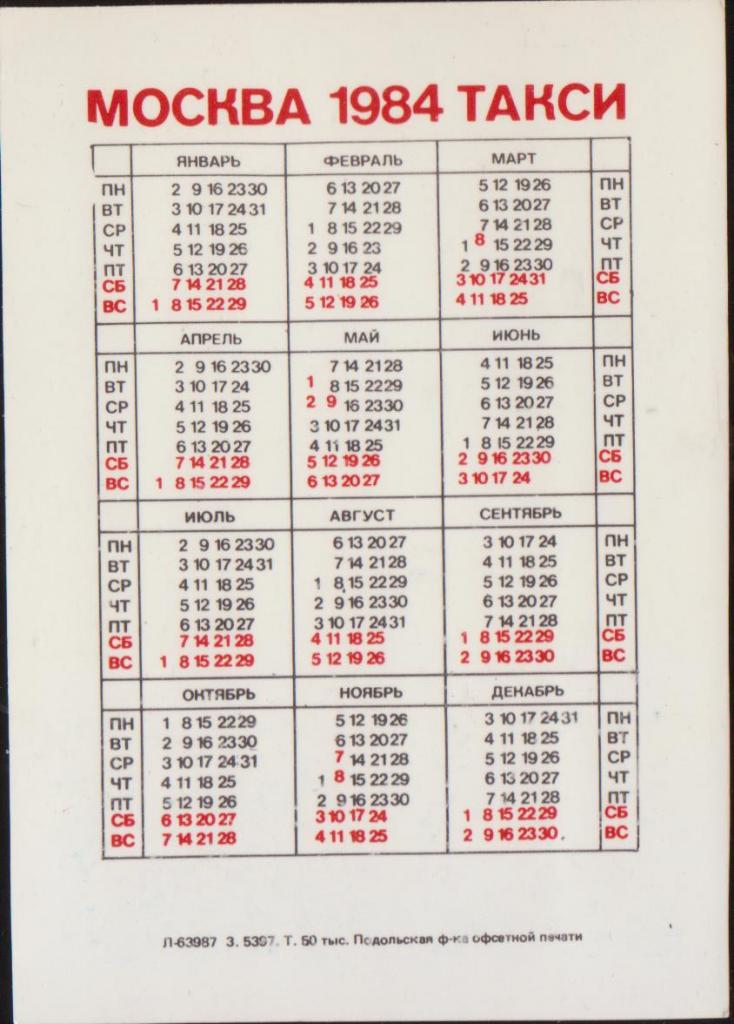 МОСКВА 1984 ТАКСИ
ЯНВАРЬ ФЕВРАЛЬ МАРТ
ПН 2 9 16 23 30 6 13 20 27 5 12 19 26 ПН
ВТ 3 10 17 24 31 7 14 21 28 6 13 20 27 ВТ
СР 4 11 18 25 1 8 15 22 29 7 14 21 28 СР
ЧТ 5 12 19 26 2 9 16 23 1 8 15 22 29 ЧТ
ПТ 6 13 20 27 3 10 17 24 2 9 16 23 30 ПТ
СБ 7 14 21 28 4 11 18 25 3 10 17 24 31 СБ
ВС 1 8 15 22 29 5 12 19 26 4 11 18 25 ВС
АПРЕЛЬ МАЙ ИЮНЬ
ПН 2 9 16 23 30 7 14 21 28 4 11 18 25 ПН
ВТ 3 10 17 24 1 8 15 22 29 5 12 19 26 ВТ
СР 4 11 18 25 2 9 16 23 30 6 13 20 27 СР
ЧТ 5 12 19 26 3 10 17 24 31 7 14 21 28 ЧТ
ПТ 6 13 20 27 4 11 18 25 1 8 15 22 29 ПТ
СБ 7 14 21 28 5 12 19 26 2 9 16 23 30 СБ
ВС 1 8 15 22 29 6 13 20 27 3 10 17 24 ВС
ИЮЛЬ АВГУСТ СЕНТЯБРЬ
ПН 2 9 16 23 30 6 13 20 27 3 10 17 24 ПН
ВТ 3 10 17 24 31 7 14 21 28 4 11 18 25 ВТ
СР 4 11 18 25 1 8 15 22 29 5 12 19 26 СР
ЧТ 5 12 19 26 2 9 16 23 30 6 13 20 27 ЧТ
ПТ 6 13 20 27 3 10 17 24 31 7 14 21 28 ПТ
СБ 7 14 21 28 4 11 18 25 1 8 15 22 29 СБ
ВС 1 8 15 22 29 5 12 19 26 2 9 16 23 30 ВС
ОКТЯБРЬ НОЯБРЬ ДЕКАБРЬ
ПН 1 8 15 22 29 5 12 19 26 3 10 17 24 31 ПН
ВТ 2 9 16 23 30 6 13 20 27 4 11 18 25 ВТ
СР 3 10 17 24 31 7 14 21 28 5 12 19 26 СР
ЧТ 4 11 18 25 1 8 15 22 29 6 13 20 27 ЧТ
ПТ 5 12 19 26 2 9 16 23 30 7 14 21 28 ПТ
СБ 6 13 20 27 3 10 17 24 1 8 15 22 29 СБ
ВС 7 14 21 28 4 11 18 25 2 9 16 23 30 ВС
Л-63987 З. 5397. Т. 50 тыс. Подольская ф-ка офсетной печати